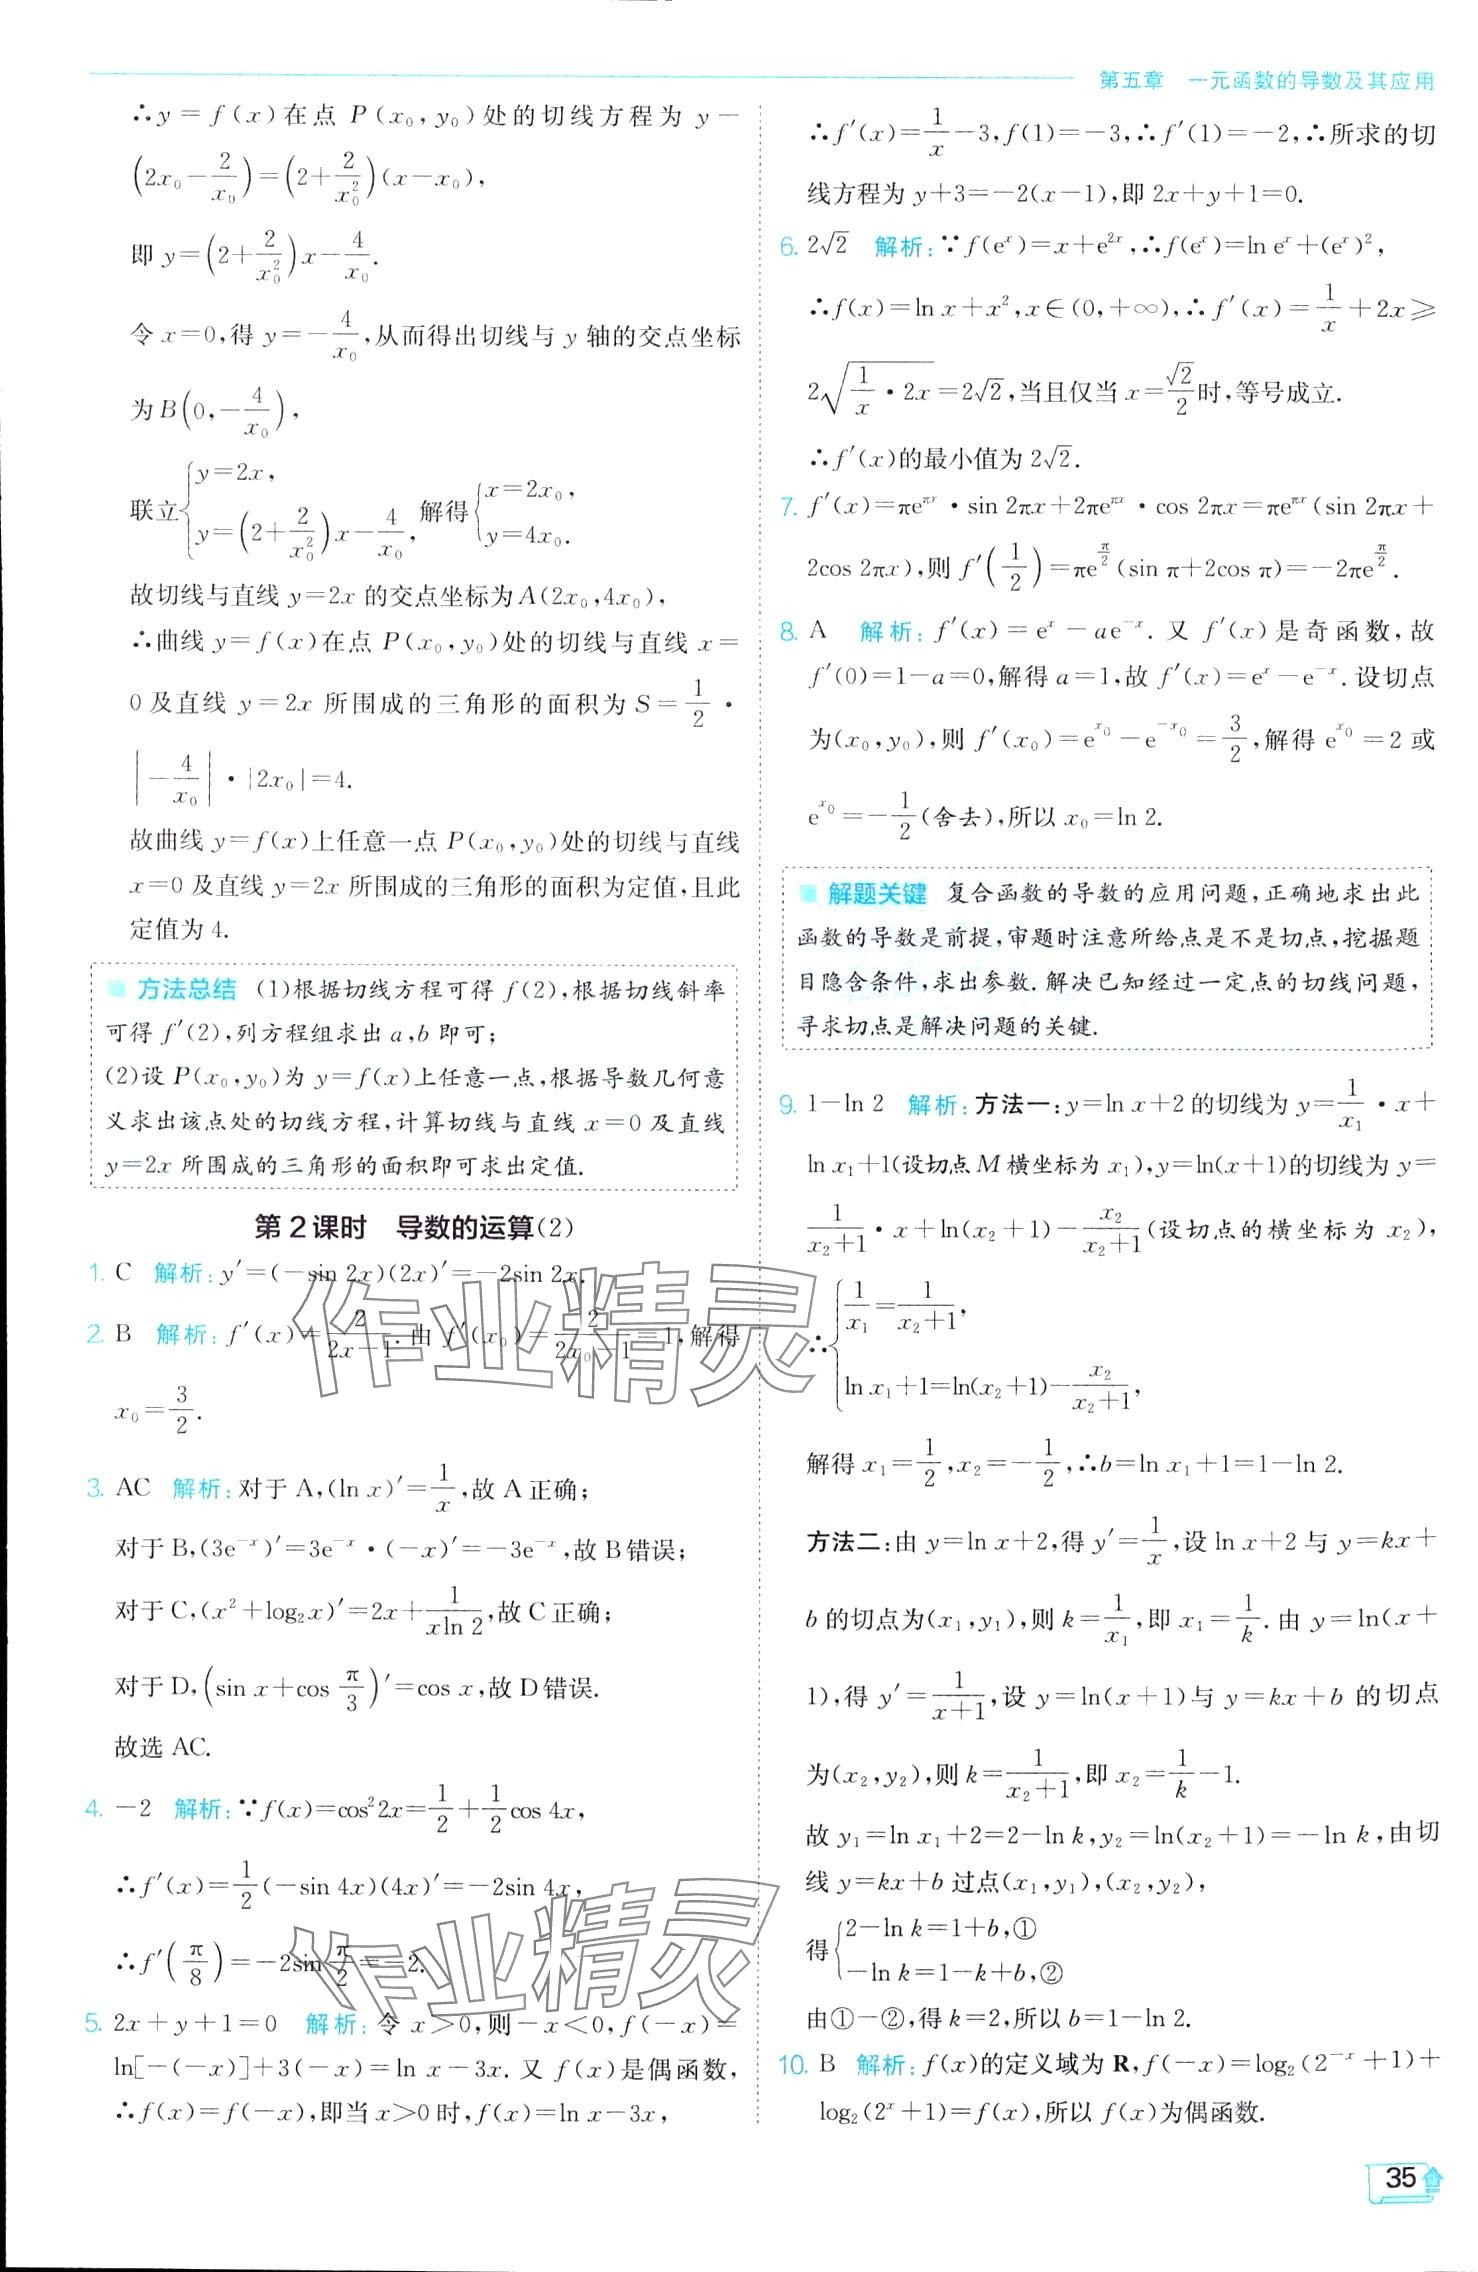 第五章 一元函数的导数及其应用
∴y=f(x)在点 P(x₀,y₀)处的切线方程为 y−
(2x₀−2/x₀)=(2+2/x₀²)(x−x₀),
即 y=(2+2/x₀²)x−4/x₀.
令 x=0,得 y=−4/x₀,从而得出切线与 y 轴的交点坐标
为B(0,−4/x₀),
联立{y=2x, y=(2+2/x₀²)x−4/x₀,解得{x=2x₀, y=4x₀.
故切线与直线 y=2x 的交点坐标为A(2x₀,4x₀),
∴曲线 y=f(x)在点 P(x₀,y₀)处的切线与直线 x=
0及直线 y=2x 所围成的三角形的面积为 S=1/2·
|−4/x₀|·|2x₀|=4.
故曲线 y=f(x)上任意一点 P(x₀,y₀)处的切线与直线
x=0及直线 y=2x 所围成的三角形的面积为定值,且此
定值为 4.
方法总结 (1)根据切线方程可得 f(2),根据切线斜率
可得 f′(2),列方程组求出 a,b 即可;
(2)设 P(x₀,y₀)为 y=f(x)上任意一点,根据导数几何意
义求出该点处的切线方程,计算切线与直线 x=0 及直线
y=2x 所围成的三角形的面积即可求出定值.
第2课时 导数的运算(2)
1. C 解析:y′=(−sin 2x)(2x)′=−2sin 2x.
2. B 解析:f′(x)=2/(2x−1).由 f′(x₀)=2/(2x₀−1)=1,解得
x₀=3/2.
3. AC 解析:对于 A,(ln x)′=1/x,故 A正确;
对于 B,(3e⁻ˣ)′=3e⁻ˣ·(−x)′=−3e⁻ˣ,故 B错误;
对于 C,(x²+log₂x)′=2x+1/(xln 2),故 C正确;
对于 D,(sin x+cos π/3)′=cos x,故 D错误.
故选 AC.
4. −2 解析:∵f(x)=cos²2x=1/2+1/2cos 4x,
∴f′(x)=1/2(−sin 4x)(4x)′=−2sin 4x,
∴f′(π/8)=−2sin π/2=−2.
5. 2x+y+1=0 解析:令 x>0,则−x<0,f(−x)=
ln[−(−x)]+3(−x)=ln x−3x. 又 f(x)是偶函数,
∴f(x)=f(−x),即当 x>0时,f(x)=ln x−3x,
∴f′(x)=1/x−3,f(1)=−3,∴f′(1)=−2,∴所求的切
线方程为 y+3=−2(x−1),即 2x+y+1=0.
6. 2√2 解析:∵f(eˣ)=x+e²ˣ,∴f(eˣ)=ln eˣ+(eˣ)²,
∴f(x)=ln x+x²,x∈(0,+∞),∴f′(x)=1/x+2x≥
2√(1/x·2x)=2√2,当且仅当 x=√2/2时,等号成立.
∴f′(x)的最小值为 2√2.
7. f′(x)=πe^(πx)·sin 2πx+2πe^(πx)·cos 2πx=πe^(πx)(sin 2πx+
2cos 2πx),则 f′(1/2)=πe^(π/2)(sin π+2cos π)=−2πe^(π/2).
8. A 解析:f′(x)=eˣ−ae⁻ˣ. 又 f′(x)是奇函数,故
f′(0)=1−a=0,解得 a=1,故 f′(x)=eˣ−e⁻ˣ.设切点
为(x₀,y₀),则 f′(x₀)=e^(x₀)−e^(−x₀)=3/2,解得 e^(x₀)=2 或
e^(x₀)=−1/2(舍去),所以 x₀=ln 2.
解题关键 复合函数的导数的应用问题,正确地求出此
函数的导数是前提,审题时注意所给点是不是切点,挖掘题
目隐含条件,求出参数.解决已知经过一定点的切线问题,
寻求切点是解决问题的关键.
9. 1−ln 2 解析:方法一:y=ln x+2的切线为 y=1/x₁·x+
ln x₁+1(设切点 M 横坐标为 x₁),y=ln(x+1)的切线为 y=
1/(x₂+1)·x+ln(x₂+1)−x₂/(x₂+1)(设切点的横坐标为 x₂),
∴{1/x₁=1/(x₂+1), ln x₁+1=ln(x₂+1)−x₂/(x₂+1),
解得 x₁=1/2,x₂=−1/2,∴b=ln x₁+1=1−ln 2.
方法二:由 y=ln x+2,得 y′=1/x,设 ln x+2 与 y=kx+
b 的切点为(x₁,y₁),则 k=1/x₁,即 x₁=1/k.由 y=ln(x+
1),得 y′=1/(x+1),设 y=ln(x+1)与 y=kx+b 的切点
为(x₂,y₂),则 k=1/(x₂+1),即 x₂=1/k−1.
故 y₁=ln x₁+2=2−ln k,y₂=ln(x₂+1)=−ln k,由切
线 y=kx+b 过点(x₁,y₁),(x₂,y₂),
得{2−ln k=1+b,① −ln k=1−k+b,②
由①−②,得 k=2,所以 b=1−ln 2.
10. B 解析:f(x)的定义域为 R,f(−x)=log₂(2⁻ˣ+1)+
log₂(2ˣ+1)=f(x),所以 f(x)为偶函数.
35
作业精灵
作业精灵